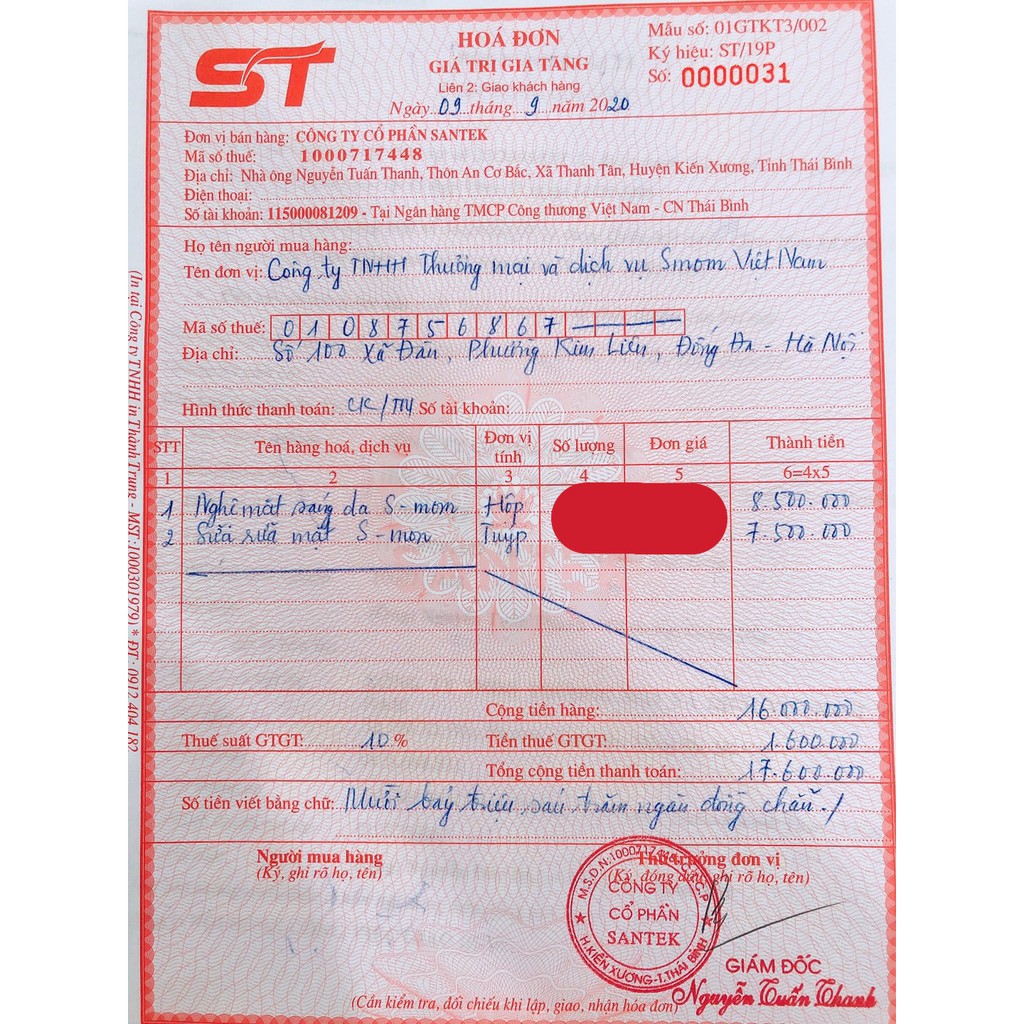 ST
HOÁ ĐƠN
GIÁ TRỊ GIA TĂNG
Liên 2: Giao khách hàng
Ngày 09 tháng 9 năm 2020
Mẫu số: 01GTKT3/002
Ký hiệu: ST/19P
Số: 0000031
Đơn vị bán hàng: CÔNG TY CỔ PHẦN SANTEK
Mã số thuế: 1000717448
Địa chỉ: Nhà ông Nguyễn Tuấn Thanh, Thôn An Cơ Bắc, Xã Thanh Tân, Huyện Kiến Xương, Tỉnh Thái Bình
Điện thoại:
Số tài khoản: 115000081209 - Tại Ngân hàng TMCP Công thương Việt Nam - CN Thái Bình
Họ tên người mua hàng:
Tên đơn vị: Công ty TNHH Thương mại và dịch vụ Smom Việt Nam
Mã số thuế: 0108756867
Địa chỉ: Số 100 Xã Đàn, Phường Kim Liên, Đống Đa - Hà Nội
Hình thức thanh toán: CK/TM Số tài khoản:
STT Tên hàng hoá, dịch vụ Đơn vị tính Số lượng Đơn giá Thành tiền
1 2 3 4 5 6=4x5
1 Nghệ mát sáng da S-mom Hộp 8.500.000
2 Sữa rửa mặt S-mom Tuýp 7.500.000
Cộng tiền hàng: 16.000.000
Thuế suất GTGT: 10 % Tiền thuế GTGT: 1.600.000
Tổng cộng tiền thanh toán: 17.600.000
Số tiền viết bằng chữ: Mười bảy triệu sáu trăm ngàn đồng chẵn./
Người mua hàng
(Ký, ghi rõ họ, tên)
Thủ trưởng đơn vị
(Ký, đóng dấu, ghi rõ họ, tên)
M.S.D.N:1000717448-C.T.C.P
CÔNG TY
CỔ PHẦN
SANTEK
H.KIẾN XƯƠNG-T.THÁI BÌNH
GIÁM ĐỐC
Nguyễn Tuấn Thanh
(Cần kiểm tra, đối chiếu khi lập, giao, nhận hóa đơn)
(In tại Công ty TNHH in Thành Trung - MST: 1000301979) * ĐT: 0912 404 182